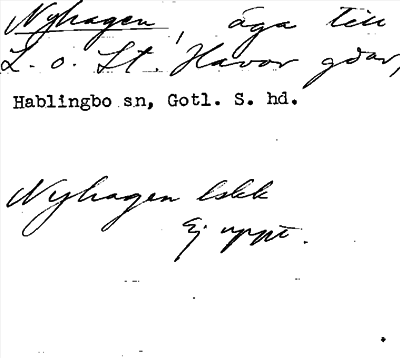 Nyhagen, äga till
L. o. St. Havor gdar,
Hablingbo sn, Gotl. S. hd.
Nyhagen lskk
Ej uppt.